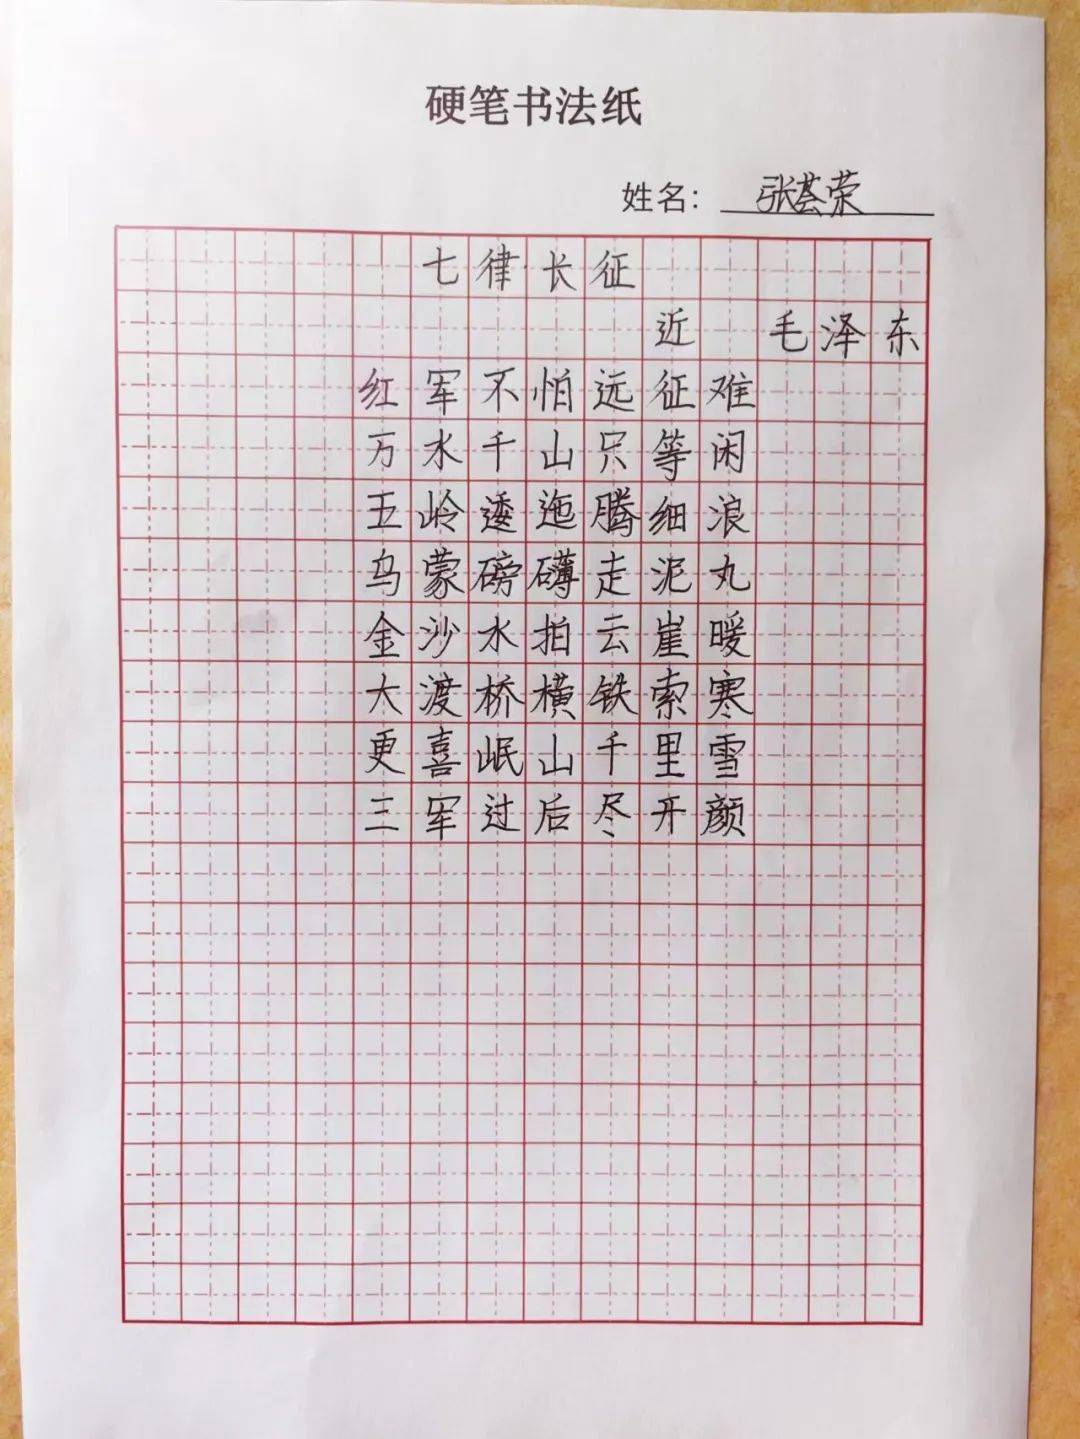 硬笔书法纸
姓名：张荟荣
七律长征
近 毛泽东
红军不怕远征难
万水千山只等闲
五岭逶迤腾细浪
乌蒙磅礴走泥丸
金沙水拍云崖暖
大渡桥横铁索寒
更喜岷山千里雪
三军过后尽开颜